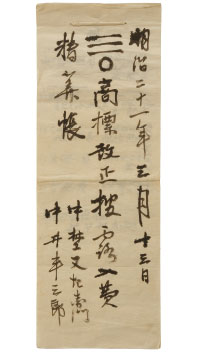 明治二十一年三月十三日
三〇商標改正披露入費
精算帳
中埜又左衛門
中井半三郎